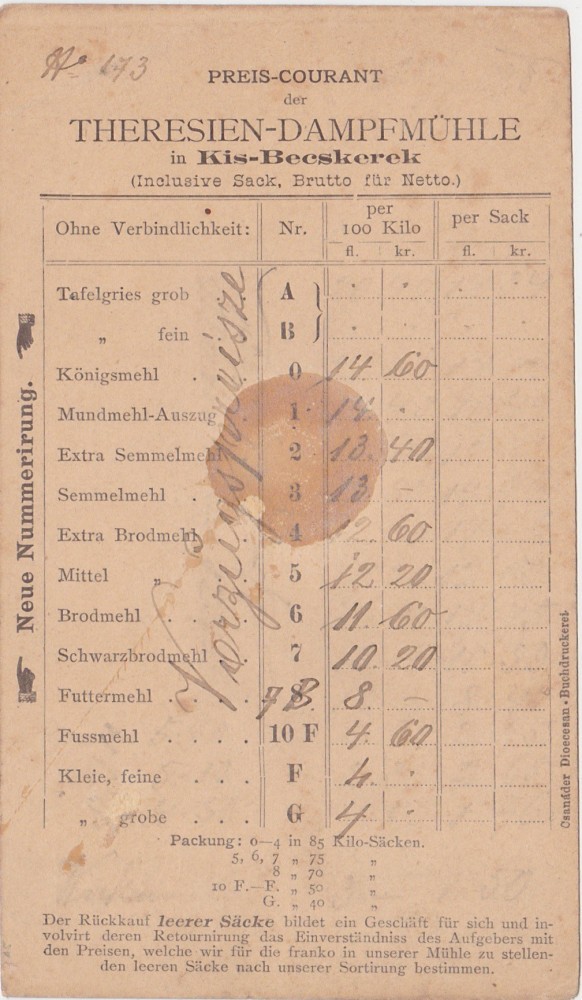 No 173
PREIS-COURANT
der
THERESIEN-DAMPFMÜHLE
in Kis-Becskerek
(Inclusive Sack, Brutto für Netto.)
Ohne Verbindlichkeit: Nr. per 100 Kilo per Sack
fl. kr. fl. kr.
Tafelgries grob A
„ fein B
Königsmehl . 0 14 60
Mundmehl-Auszug 1 14 .
Extra Semmelmehl 2 13 40
Semmelmehl . 3 13 –
Extra Brodmehl 4 12 60
Mittel „ 5 12 20
Brodmehl . . . . 6 11 60
Schwarzbrodmehl . 7 10 20
Futtermehl . . . . 8 7B 8 –
Fussmehl . . . . 10 F 4 60
Kleie, feine . . . F 4 .
„ grobe . . . G 4 .
Vorzugspreise
Neue Nummerirung.
Packung: 0—4 in 85 Kilo-Säcken.
5, 6, 7 „ 75 „
8 „ 70 „
10 F.—F. „ 50 „
G. „ 40 „
Der Rückkauf leerer Säcke bildet ein Geschäft für sich und in-
volvirt deren Retournirung das Einverständniss des Aufgebers mit
den Preisen, welche wir für die franko in unserer Mühle zu stellen-
den leeren Säcke nach unserer Sortirung bestimmen.
Csanáder Dioecesan-Buchdruckerei.